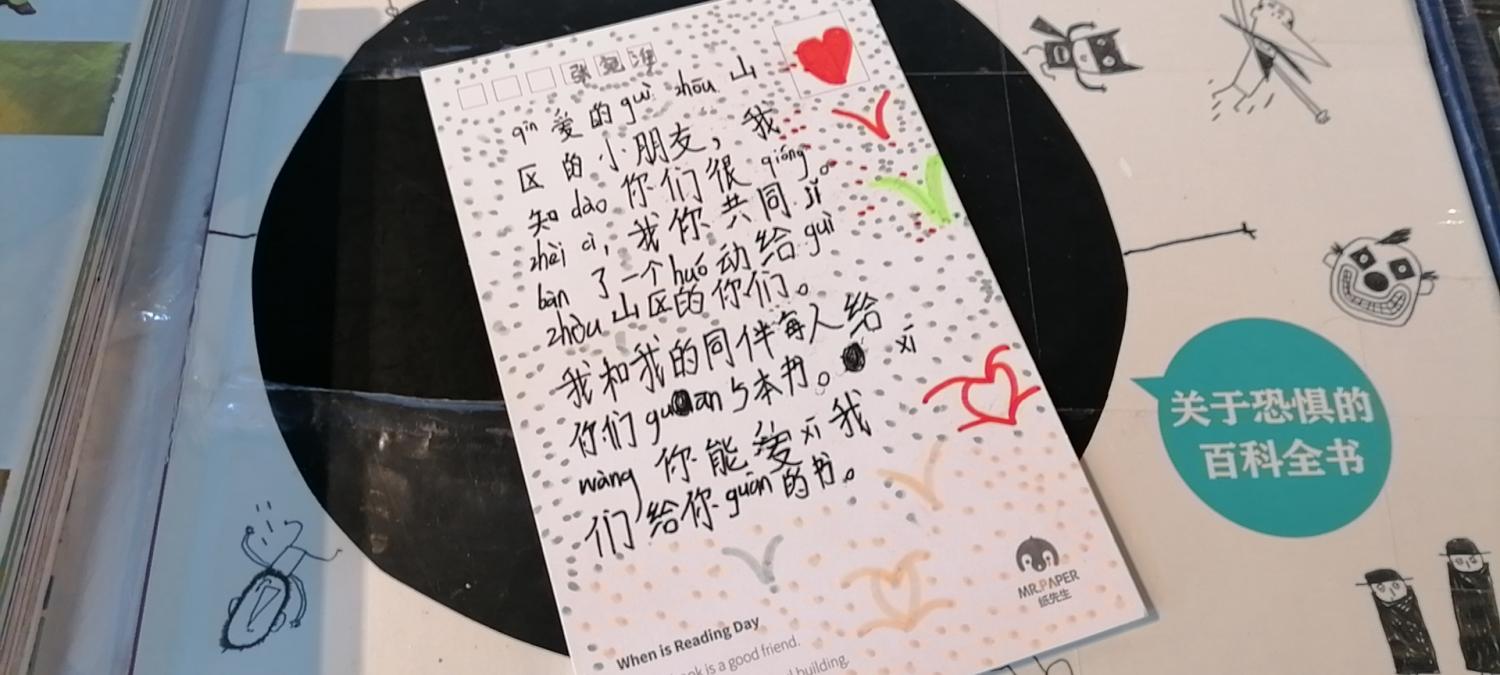 张宛淮
qīn爱的guì zhōu山
区的小朋友，我
知dào你们很qióng。
zhèi cì，我你共同jǔ
bàn了一个huó动给guì
zhōu山区的你们。
我和我的同伴每人给
你们guan 5本书。xī
wàng你能爱xī我
们给你guān的书。
MR.PAPER
纸先生
When is Reading Day
ook is a good friend.
building.
关于恐惧的
百科全书